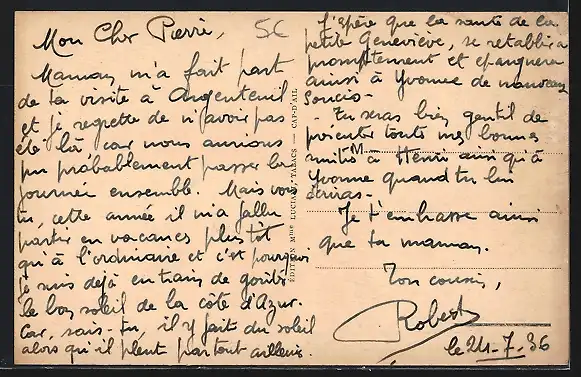 Mon Cher Pierre,
Maman m'a fait part
de ta visite à Argenteuil
et je regrette de n'avoir pas
été là car nous aurions
pu probablement passer la
journée ensemble. Mais vois
tu, cette année il m'a fallu
partir en vacances plus tôt
qu'à l'ordinaire et c'est pourquoi
je suis déjà en train de goûter
le bon soleil de la côte d'Azur.
Car, sais-tu, il y fait du soleil
alors qu'il pleut partout ailleurs.
5€
ÉDITION Mme LUCIANI, TABACS — CAP-D'AIL
J'espère que la santé de la
petite Geneviève, se rétablira
promptement et épargnera
ainsi à Yvonne de nouveaux
soucis -
- Tu seras bien gentil de
présenter toute mes bonnes
M
amitiés à Henri ainsi qu'à
Yvonne quand tu lui
écriras -
Je t'embrasse ainsi
que ta maman.
Ton cousin,
Robert
le 24-7-36